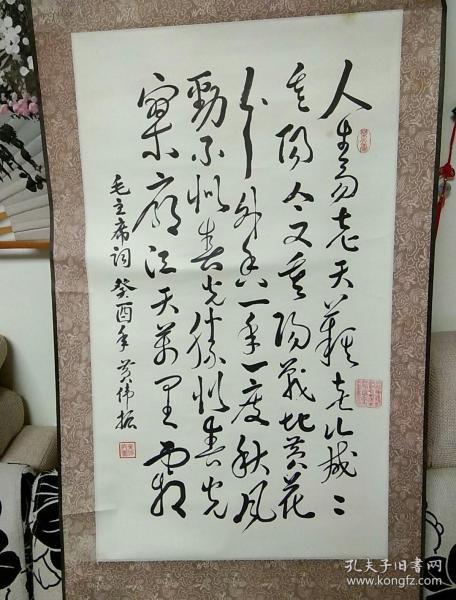 人生易老天難老歲々
重陽今又重陽戰地黃花
分外香一年一度秋風
勁不似春光勝似春光
寥廓江天萬里霜
毛主席詞 癸酉年
孔夫子旧书网
www.kongfz.com